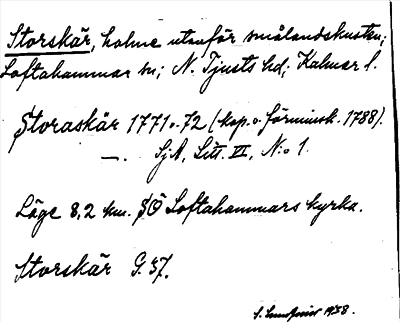 Storskär, holme utanför smålandskusten;
Loftahammar sn; N. Tjusts hd; Kalmar l.
Storaskär 1771 o. 72 (kop. o. förminsk. 1788).
—. SjA, Litt. VI, N:o 1.
Läge 8,2 km. SÖ Loftahammars kyrka.
Storskär G. 37.
1938.